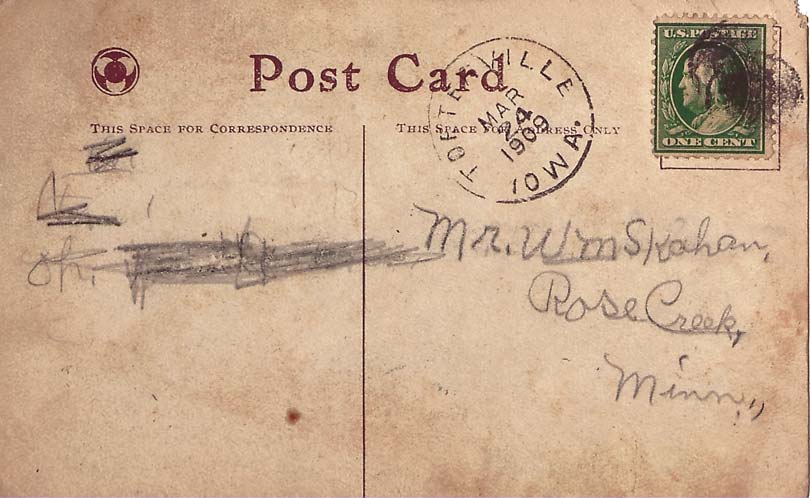 Post Card
THIS SPACE FOR CORRESPONDENCE
THIS SPACE FOR ADDRESS ONLY
TOETERVILLE
MAR
24
1909
IOWA.
U.S. POSTAGE
ONE CENT
Mr. Wm Skahan,
Rose Creek,
Minn.,